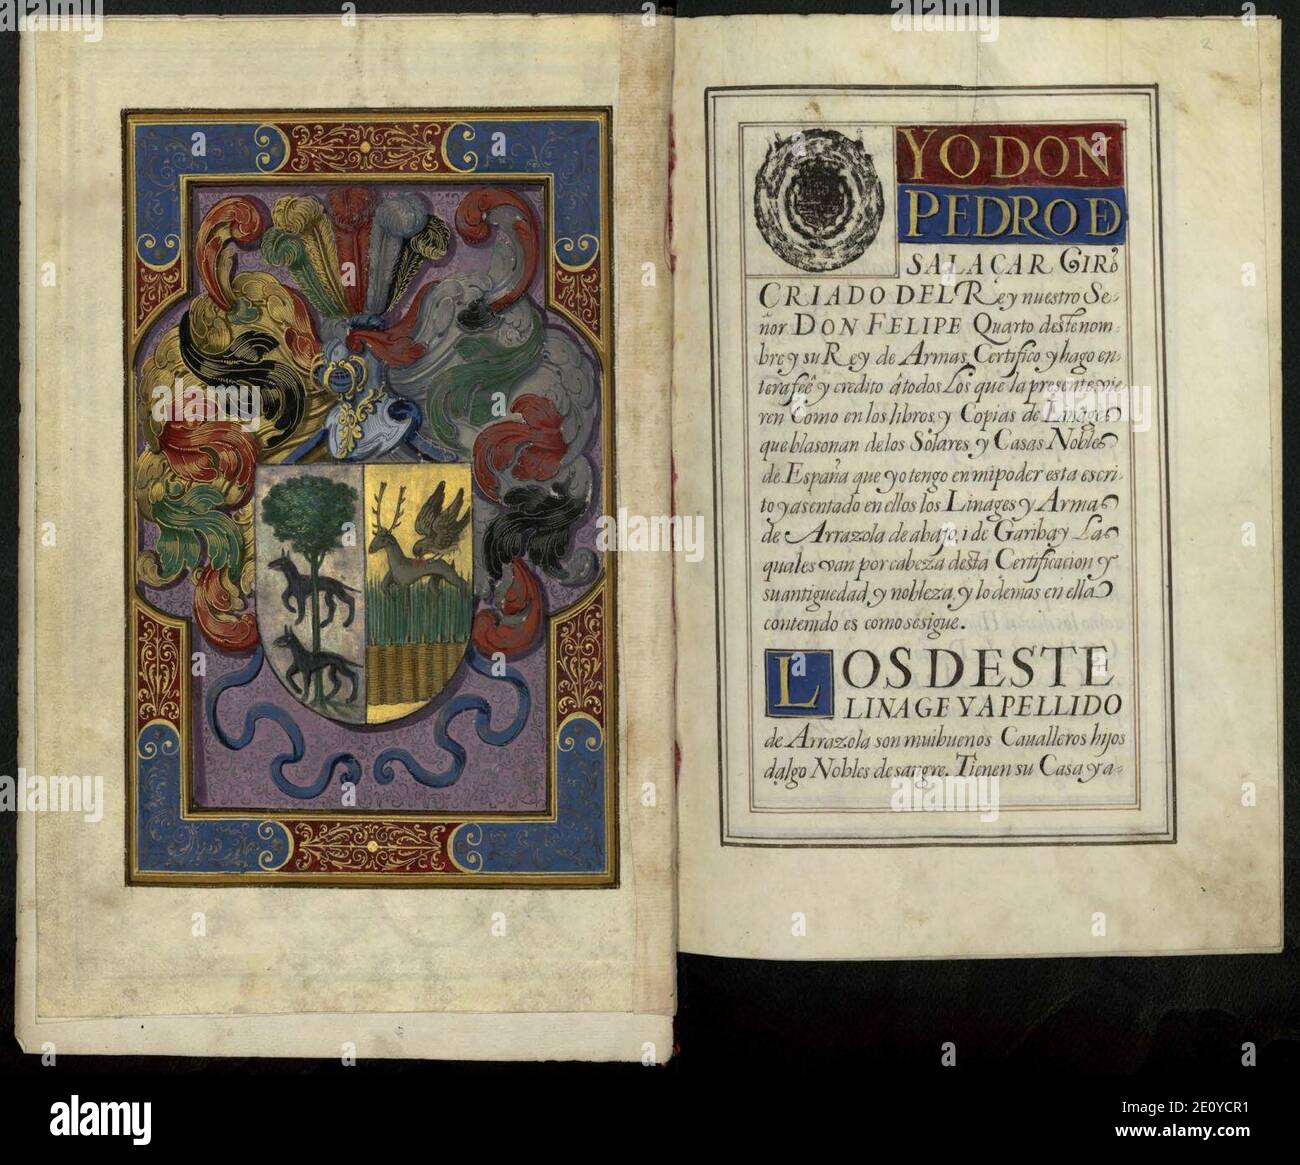 2
YO DON
PEDRO D
SALAÇAR GIRº
CRIADO DEL Rey nuestro Se-
ñor DON FELIPE Quarto deste nom-
bre y su Rey de Armas, Certifico y hago en-
tera feê y credito â todos Los que la presente vie
ren Como en los libros, y Copias de Linages
que blasonan de los Solares y Casas Nobles
de España que yo tengo en mi poder esta escri-
to y asentado en ellos los Linages y Armas
de Arrazola de abajo, i de Garibay Las
quales van por cabeza desta Certificacion y
su antiguedad, y nobleza, y lo demas en ella
contenido es como se sigue.
LOS DESTE
LINAGE Y APELLIDO
de Arrazola son mui buenos Caualleros hijos
dalgo Nobles de sangre. Tienen su Casa y a-
alamy
Image ID: 2E0YCR1
www.alamy.com